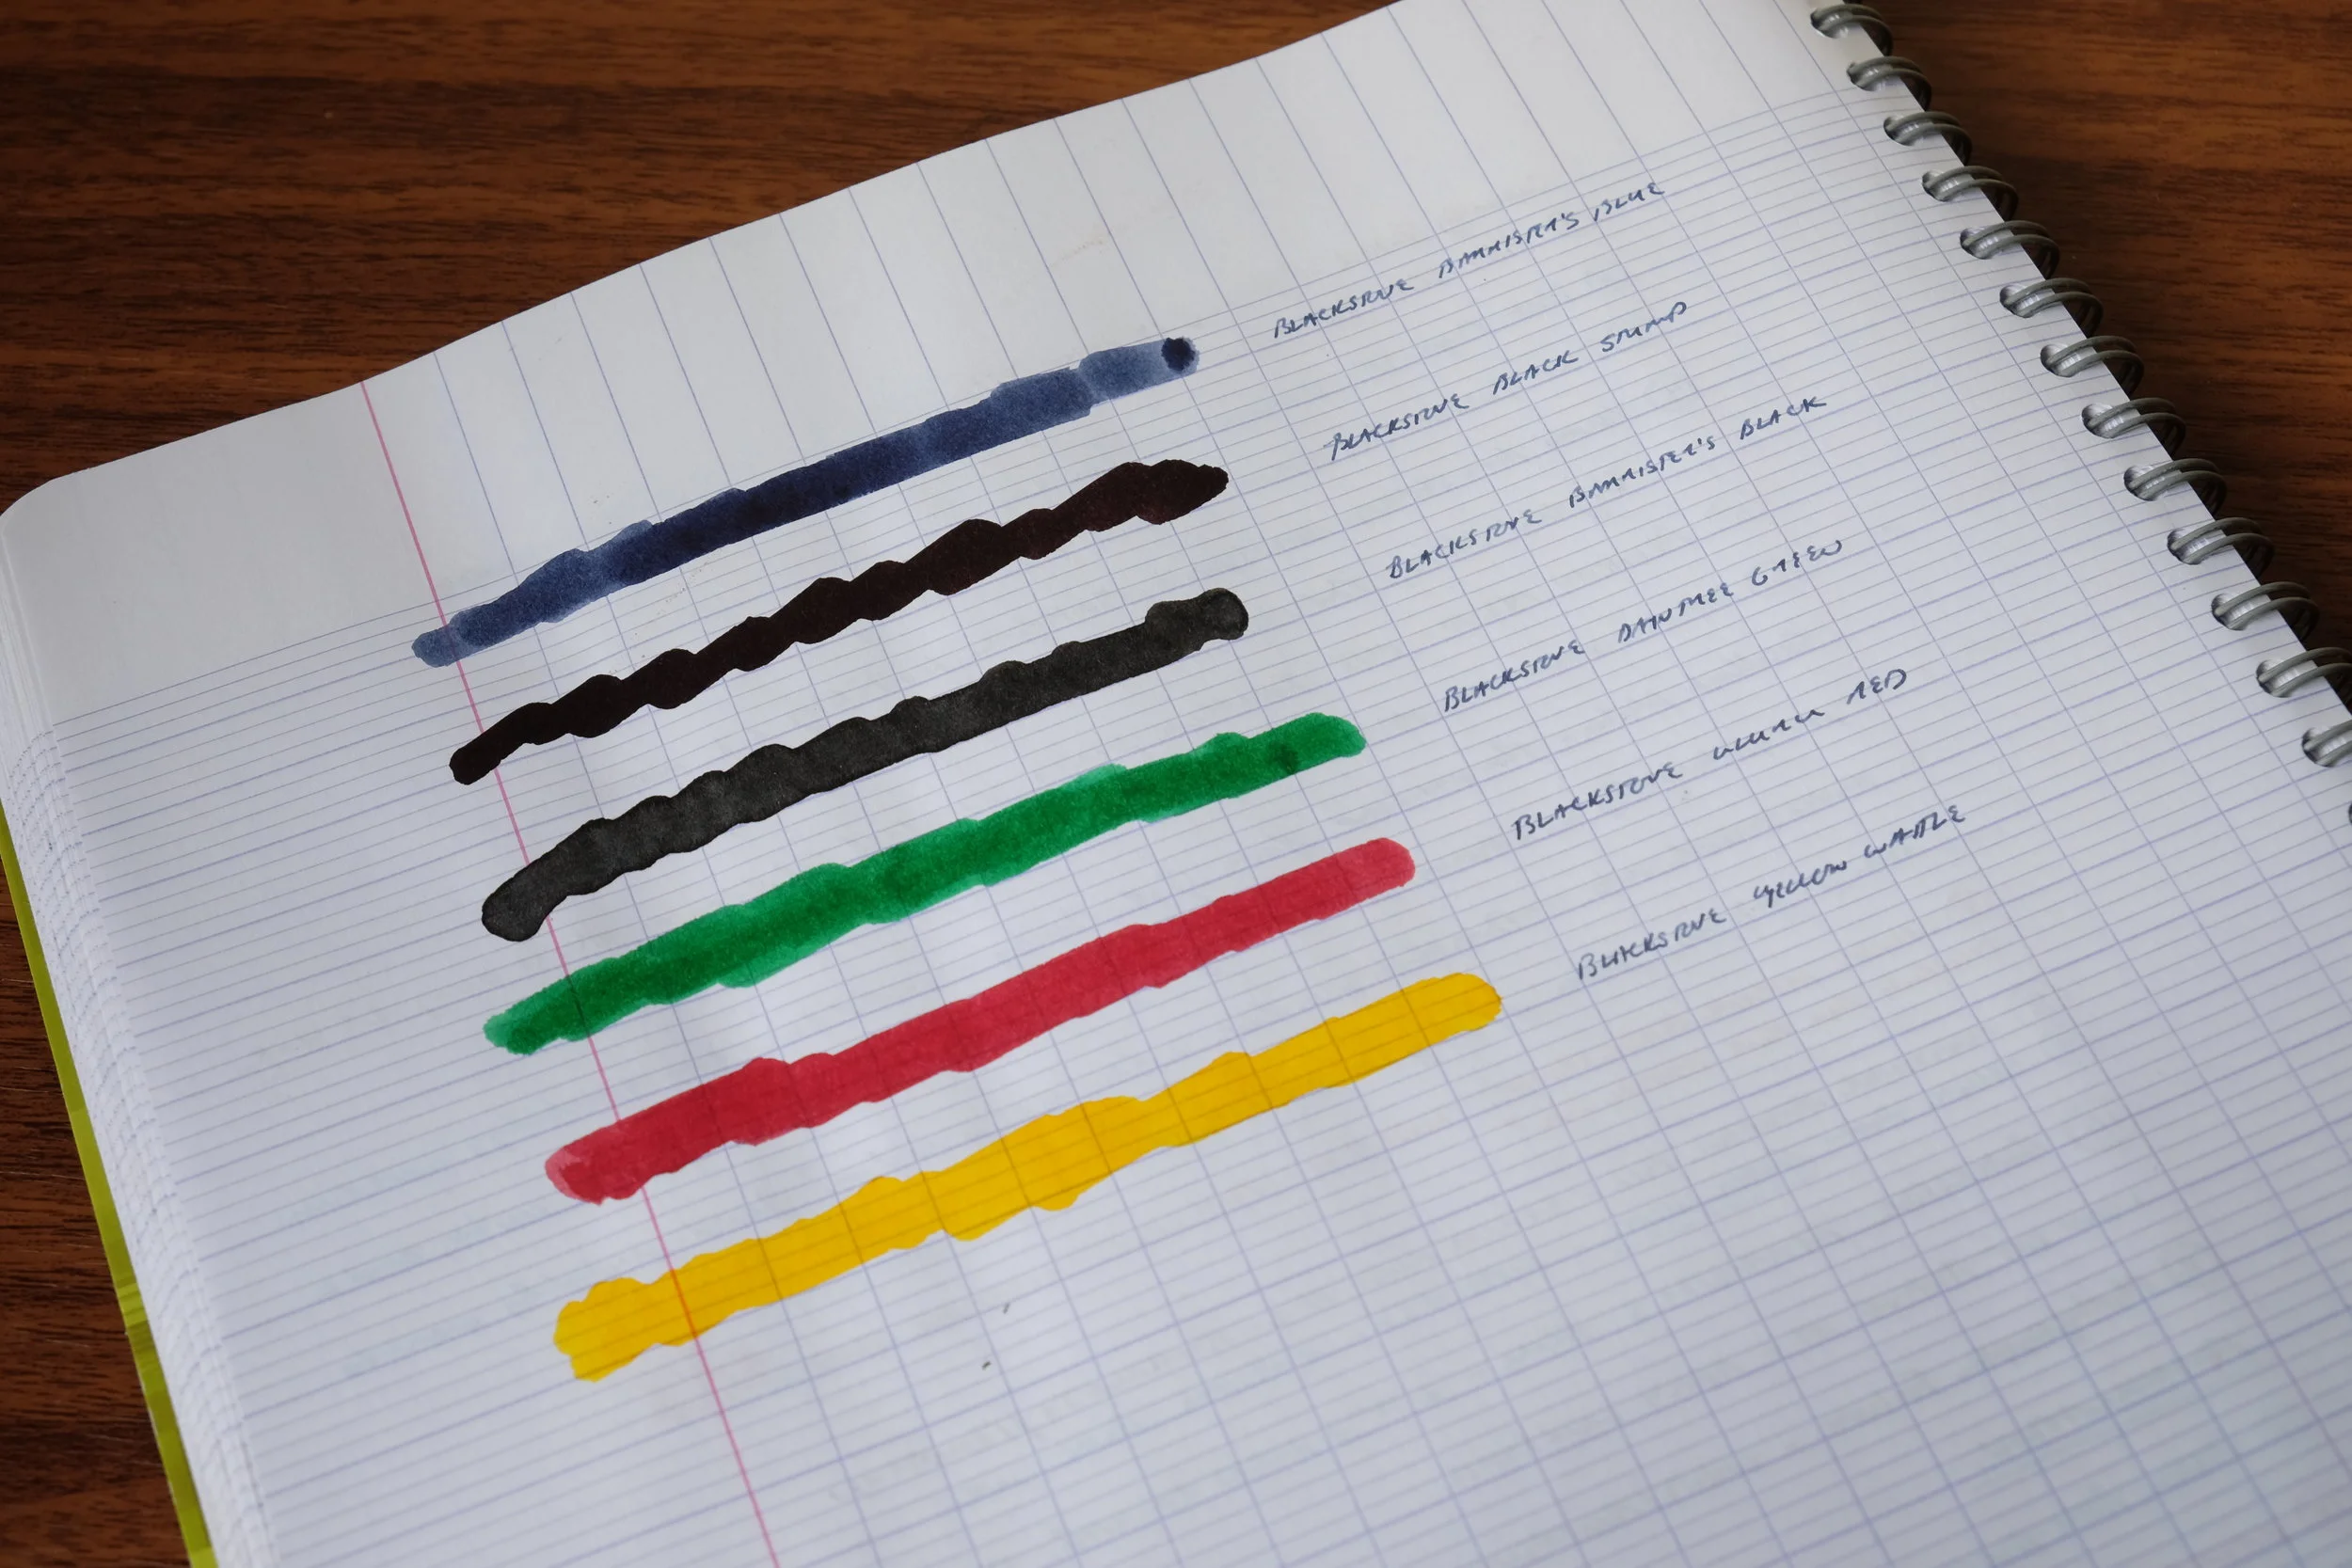 BLACKSTONE BARRISTER'S BLUE
BLACKSTONE BLACK STUMP
BLACKSTONE BARRISTER'S BLACK
BLACKSTONE DAINTREE GREEN
BLACKSTONE ULURU RED
BLACKSTONE YELLOW WATTLE